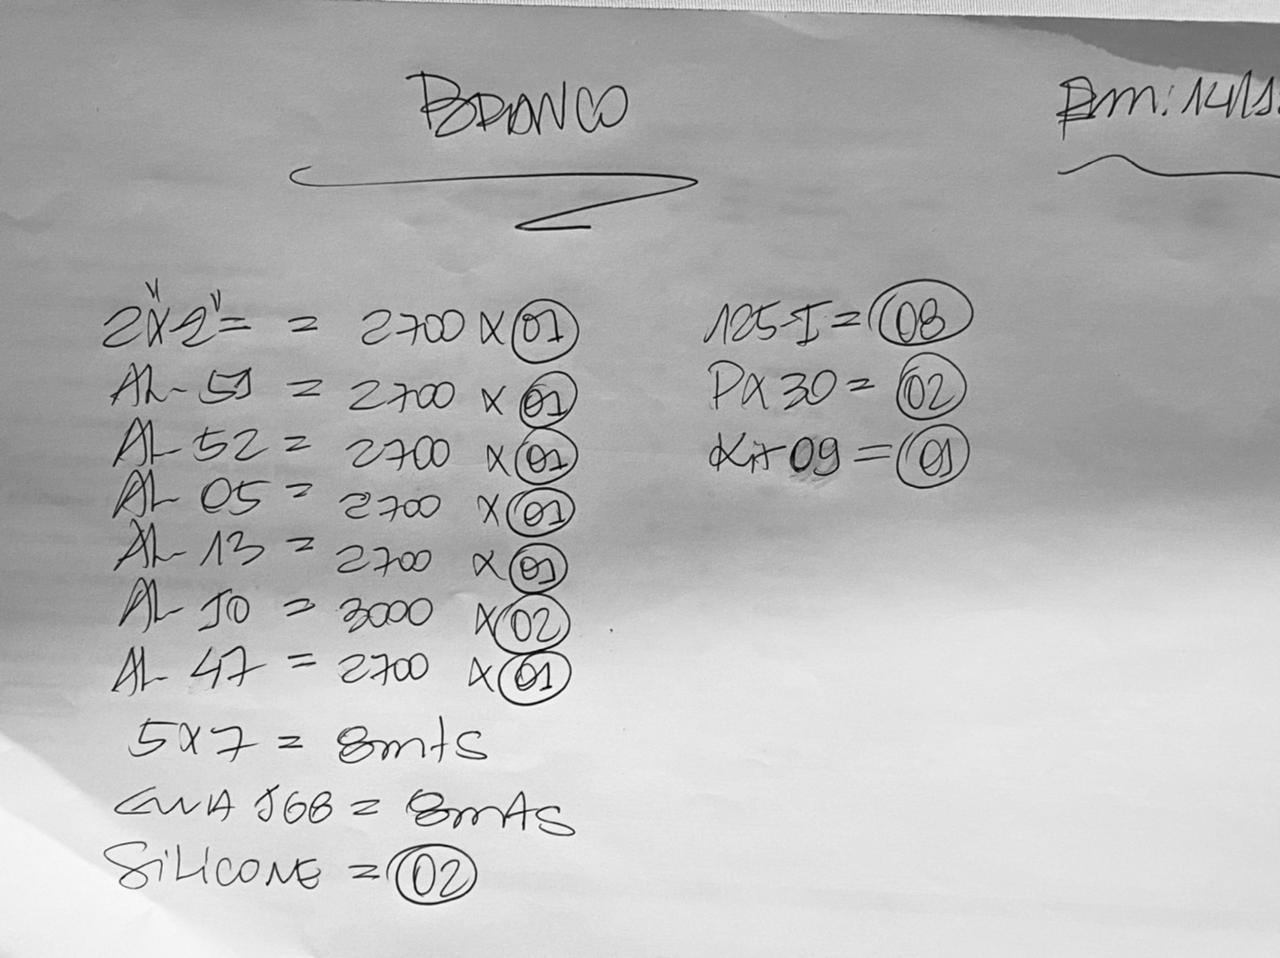 BRANCO
Em: 14/11
2"x2" = = 2700 x 01
AL- 51 = 2700 x 01
AL 52 = 2700 x 01
AL 05 = 2700 x 01
AL- 13 = 2700 x 01
AL 10 = 3000 x 02
AL 47 = 2700 x 01
5x7 = 8mts
168 = 8mts
SILICONE = 02
125-I = 08
PX 30 = 02
Kit 09 = 01